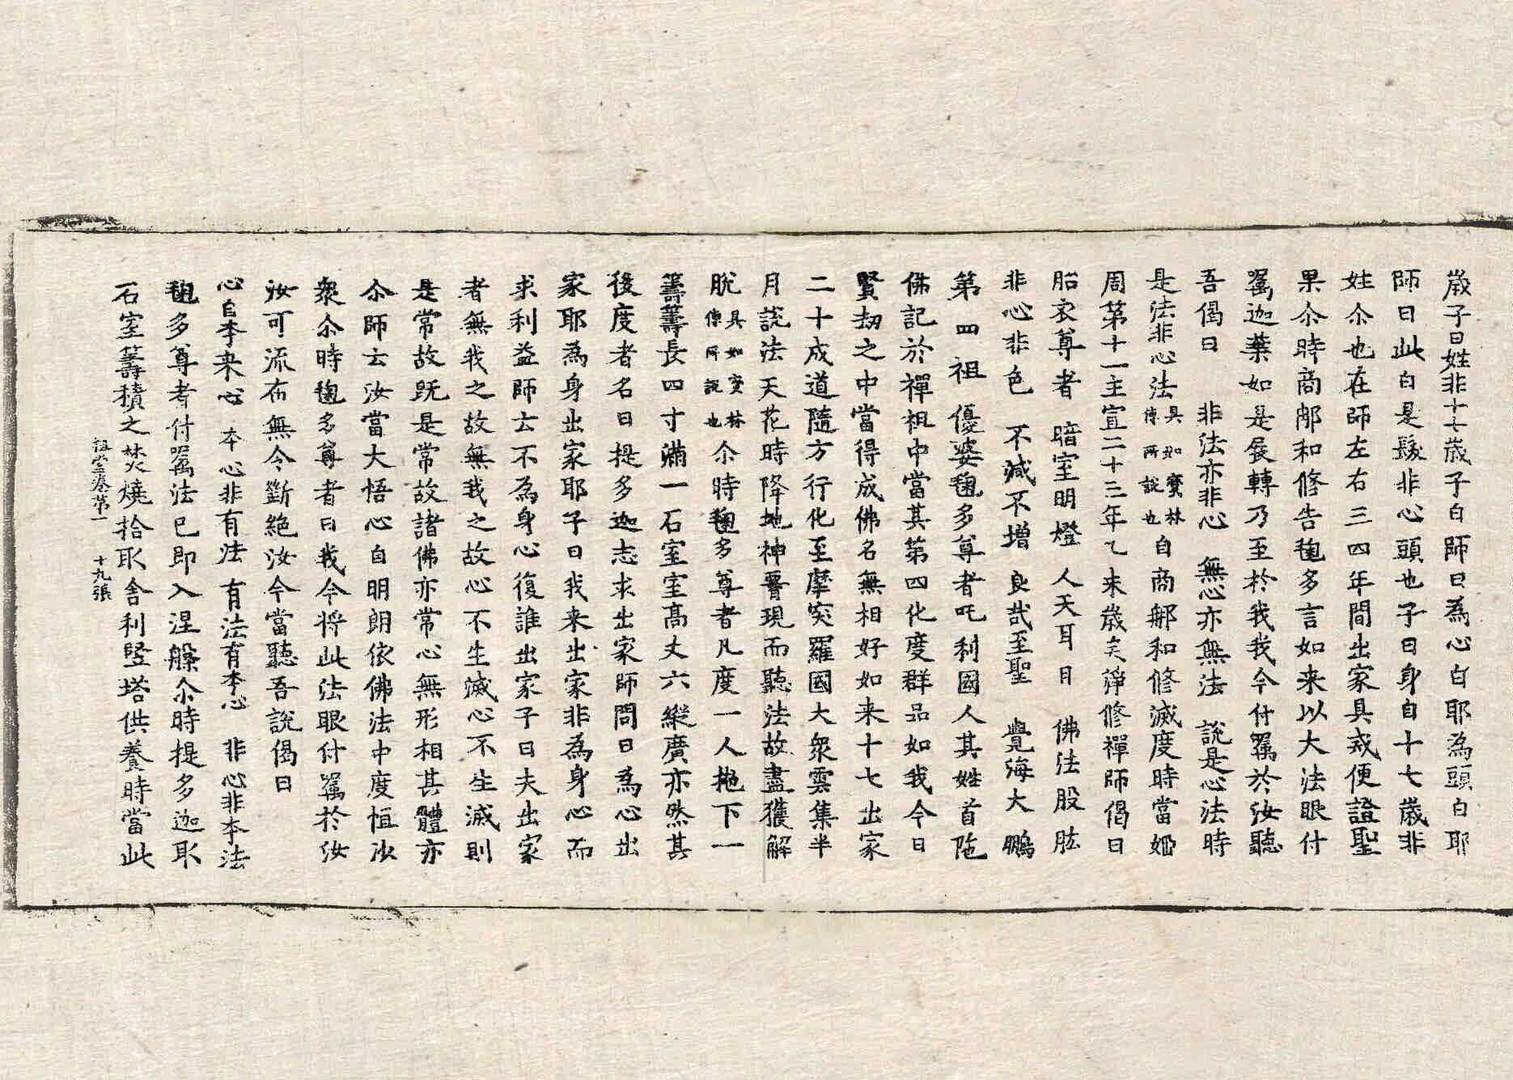 歲子曰姓非十七歲子白師曰為心白耶為頭白耶
師曰此白是髮非心頭也子曰身自十七歲非
姓尒也在師左右三四年間出家具戒便證聖
果尒時商郍和修告毱多言如来以大法眼付
囑迦葉如是展轉乃至於我我今付囑於汝聽
吾偈曰　非法亦非心　無心亦無法　說是心法時
是法非心法具如寶林傳所說也自商郍和修滅度時當姬
周第十一主宣二十三年乙未歲矣淨修禪師偈曰
胎衣尊者　暗室明燈　人天耳目　佛法股肱
非心非色　不減不增　良哉至聖　覺海大鵬
第四祖優婆毱多尊者吒利國人其姓首陁
佛記於禪祖中當其第四化度群品如我今日
賢劫之中當得成佛名無相好如来十七出家
二十成道隨方行化至摩突羅國大衆雲集半
月說法天花時降地神忽現而聽法故盡獲解
脫具如寶林傳所說也尒時毱多尊者凡度一人抱下一
籌籌長四寸滿一石室室高丈六縱廣亦然其
後度者名曰提多迦志求出家師問曰為心出
家耶為身出家耶子曰我来出家非為身心而
求利益師云不為身心復誰出家子曰夫出家
者無我之故無我之故心不生滅心不生滅則
是常故既是常故諸佛亦常心無形相其體亦
尒師云汝當大悟心自明朗依佛法中度恒沙
衆尒時毱多尊者曰我今将此法眼付囑於汝
汝可流布無令斷絕汝今當聽吾說偈曰
心自李来心　本心非有法　有法有李心　非心非本法
毱多尊者付囑法已即入涅槃尒時提多迦取
石室籌積之焚燒拾取舍利竪塔供養時當此
祖堂卷第一　十九張